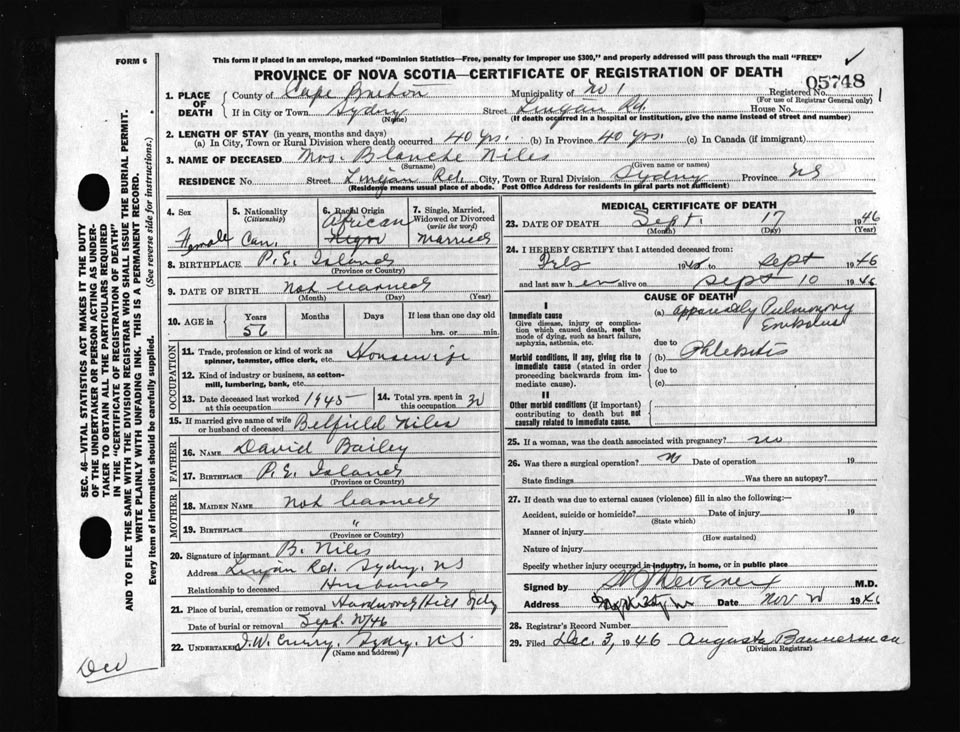 FORM 6
This form if placed in an envelope, marked "Dominion Statistics—Free, penalty for improper use $300," and properly addressed will pass through the mail "FREE"
PROVINCE OF NOVA SCOTIA—CERTIFICATE OF REGISTRATION OF DEATH
05748
1. PLACE OF DEATH
County of Cape Breton Municipality of No 1 Registered No.
(For use of Registrar General only)
If in City or Town Sydney Street Lingan Rd. House No.
(Name) (If death occurred in a hospital or institution, give the name instead of street and number)
2. LENGTH OF STAY (in years, months and days)
(a) In City, Town or Rural Division where death occurred 40 yrs. (b) In Province 40 yrs. (c) In Canada (if immigrant)
3. NAME OF DECEASED Mrs. Blanche Niles
(Surname) (Given name or names)
RESIDENCE No. Street Lingan Rd. City, Town or Rural Division Sydney Province NS
(Residence means usual place of abode. Post Office Address for residents in rural parts not sufficient)
4. Sex Female
5. Nationality (Citizenship) Can.
6. Racial Origin African Negro
7. Single, Married, Widowed or Divorced (write the word) Married
8. BIRTHPLACE P. E. Island
(Province or Country)
9. DATE OF BIRTH Not learned
(Month) (Day) (Year)
10. AGE in Years Months Days If less than one day
56 hrs. or min.
OCCUPATION
11. Trade, profession or kind of work as spinner, teamster, office clerk, etc. Housewife
12. Kind of industry or business, as cotton-mill, lumbering, bank, etc.
13. Date deceased last worked at this occupation 1945
14. Total yrs. spent in this occupation 30
15. If married give name of wife or husband of deceased Belfield Niles
FATHER
16. NAME David Bailey
17. BIRTHPLACE P. E. Island
(Province or Country)
MOTHER
18. MAIDEN NAME Not learned
19. BIRTHPLACE "
(Province or Country)
20. Signature of informant B. Niles
Address Lingan Rd. Sydney, NS
Relationship to deceased Husband
21. Place of burial, cremation or removal Hardwood Hill Sydney
Date of burial or removal Sept. 20/46
22. UNDERTAKER Sydney, N.S.
(Name and address)
MEDICAL CERTIFICATE OF DEATH
23. DATE OF DEATH Sept. 17 1946
(Month) (Day) (Year)
24. I HEREBY CERTIFY that I attended deceased from:
Feb 1945 to Sept 1946
and last saw h er alive on Sept 10 1946
CAUSE OF DEATH
I
Immediate cause
Give disease, injury or complication which caused death, not the mode of dying, such as heart failure, asphyxia, asthenia, etc.
(a) apparently Pulmonary Embolus
due to
Morbid conditions, if any, giving rise to immediate cause (stated in order proceeding backwards from immediate cause)
(b) Phlebitis
due to
(c)
II
Other morbid conditions (if important) contributing to death but not causally related to immediate cause.
25. If a woman, was the death associated with pregnancy? no
26. Was there a surgical operation? N Date of operation 19
State findings Was there an autopsy?
27. If death was due to external causes (violence) fill in also the following:—
Accident, suicide or homicide? Date of injury 19
(State which)
Manner of injury
(How sustained)
Nature of injury
Specify whether injury occurred in industry, in home, or in public place
Signed by M.D.
Address Date Nov 1946
28. Registrar's Record Number
29. Filed Dec. 3, 1946 Augusta Bannerman
(Division Registrar)
SEC. 46—VITAL STATISTICS ACT MAKES IT THE DUTY
OF THE UNDERTAKER OR PERSON ACTING AS UNDER-
TAKER TO OBTAIN ALL THE PARTICULARS REQUIRED
IN THE "CERTIFICATE OF REGISTRATION OF DEATH"
AND TO FILE THE SAME WITH THE DIVISION REGISTRAR WHO SHALL ISSUE THE BURIAL PERMIT.
WRITE PLAINLY WITH UNFADING INK. THIS IS A PERMANENT RECORD.
Every item of information should be carefully supplied. (See reverse side for instructions.)